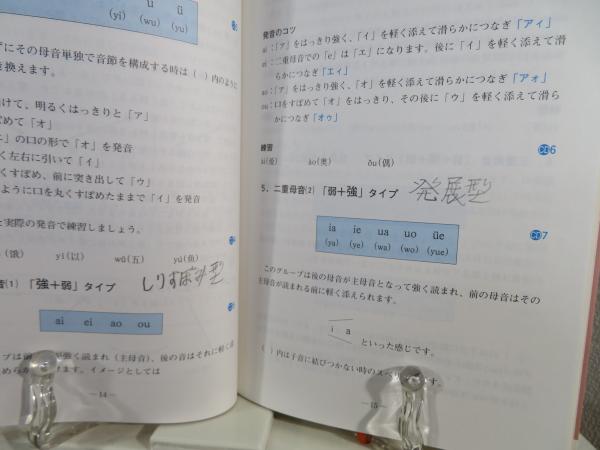 ü ü
(yi) (wu) (yu)
ずにその母音単独で音節を構成する時は( )内のように
き換えます。
けて、明るくはっきりと「ア」
ぼめて「オ」
の口の形で「オ」を発音
く左右に引いて「イ」
すぼめ、前に突き出して「ウ」
ように口を丸くすぼめたままで「イ」を発音
と実際の発音で練習しましょう。
(饿) yǐ(以) wǔ(五) yú(鱼)
音(1) 「強+弱」タイプ しりすぼみ型
ai ei ao ou
プは前 が強く読まれ(主母音)、後の音はそれに軽く
ます。イメージとしては
―14―
発音のコツ
ai:「ア」をはっきり強く、「イ」を軽く添えて滑らかにつなぎ「アィ」
ei:二重母音での「e」は「エ」になります。後に「イ」を軽く添えて滑
らかにつなぎ「エィ」
ao:「ア」をはっきり強く、「オ」を軽く添えて滑らかにつなぎ「アォ」
ou:口をすぼめて「オ」をはっきり、その後に「ウ」を軽く添えて滑ら
かにつなぎ「オゥ」
練習
CD6
ài(爱) ào(奥) ǒu(偶)
5.二重母音(2) 「弱+強」タイプ 発展型
ia ie ua uo üe
(ya) (ye) (wa) (wo) (yue)
CD7
このグループは後の母音が主母音となって強く読まれ、前の母音はその
主母音が読まれる前に軽く添えられます。
i a といった感じです。
( )内は子音に結びつかない時のス です。
―15―